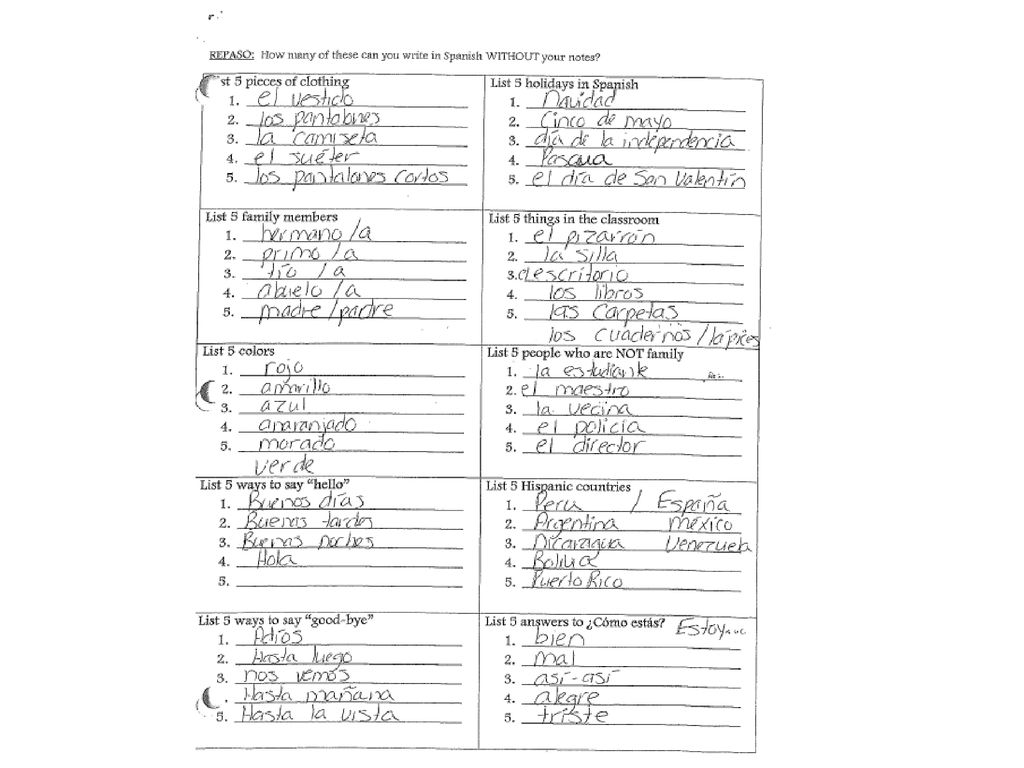 REPASO: How many of these can you write in Spanish WITHOUT your notes?
st 5 pieces of clothing
1. el vestido
2. los pantalones
3. la camiseta
4. el suéter
5. los pantalones cortos
List 5 holidays in Spanish
1. Navidad
2. Cinco de mayo
3. día de la independencia
4. Pascua
5. el día de San Valentín
List 5 family members
1. hermano/a
2. primo/a
3. tío/a
4. abuelo/a
5. madre/padre
List 5 things in the classroom
1. el pizarrón
2. la silla
3. el escritorio
4. los libros
5. las carpetas
los cuadernos/lápices
List 5 colors
1. rojo
2. amarillo
3. azul
4. anaranjado
5. morado
verde
List 5 people who are NOT family
1. la estudiante
2. el maestro
3. la vecina
4. el policía
5. el director
List 5 ways to say "hello"
1. Buenos días
2. Buenas tardes
3. Buenas noches
4. Hola
5.
List 5 Hispanic countries
1. Peru / España
2. Argentina México
3. Nicaragua Venezuela
4. Bolivia
5. Puerto Rico
List 5 ways to say "good-bye"
1. Adiós
2. Hasta luego
3. nos vemos
. Hasta mañana
5. Hasta la vista
List 5 answers to ¿Cómo estás? Estoy...
1. bien
2. mal
3. así-así
4. alegre
5. triste